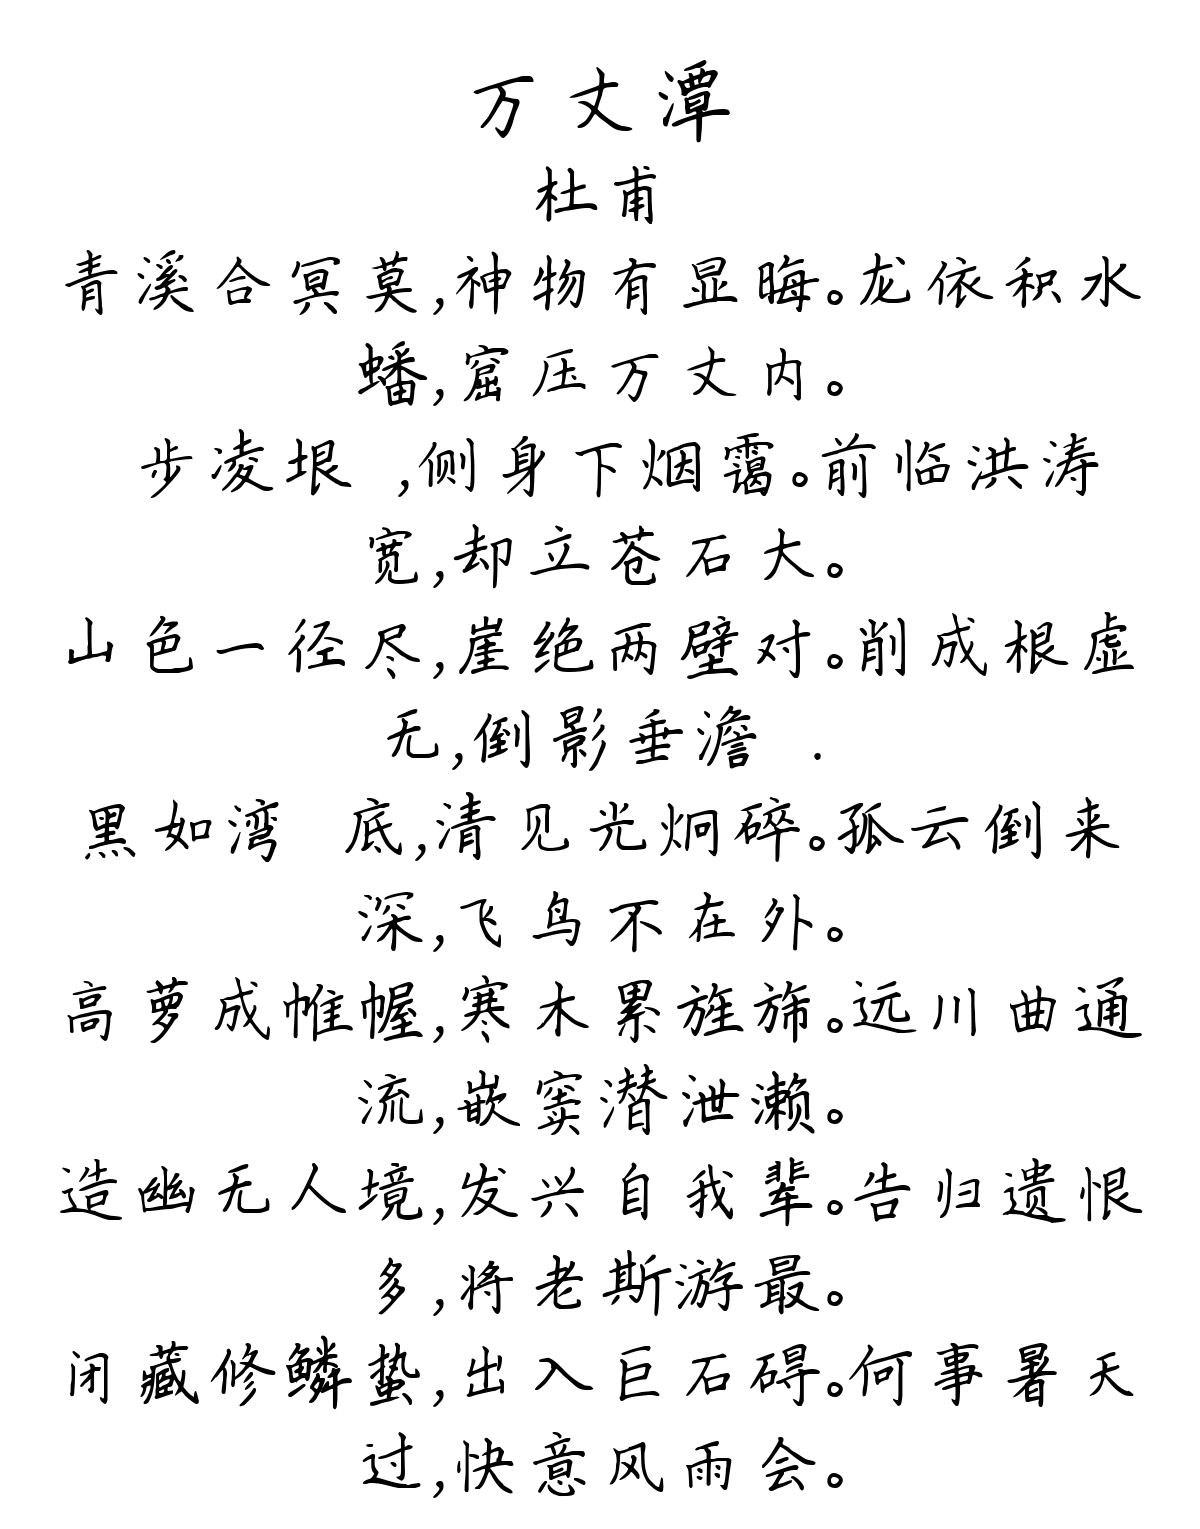 万丈潭
杜甫
青溪合冥莫,神物有显晦。龙依积水
蟠,窟压万丈内。
步凌垠 ,侧身下烟霭。前临洪涛
宽,却立苍石大。
山色一径尽,崖绝两壁对。削成根虚
无,倒影垂澹 .
黑如湾 底,清见光炯碎。孤云倒来
深,飞鸟不在外。
高萝成帷幄,寒木累旌旆。远川曲通
流,嵌窦潜泄濑。
造幽无人境,发兴自我辈。告归遗恨
多,将老斯游最。
闭藏修鳞蛰,出入巨石碍。何事暑天
过,快意风雨会。